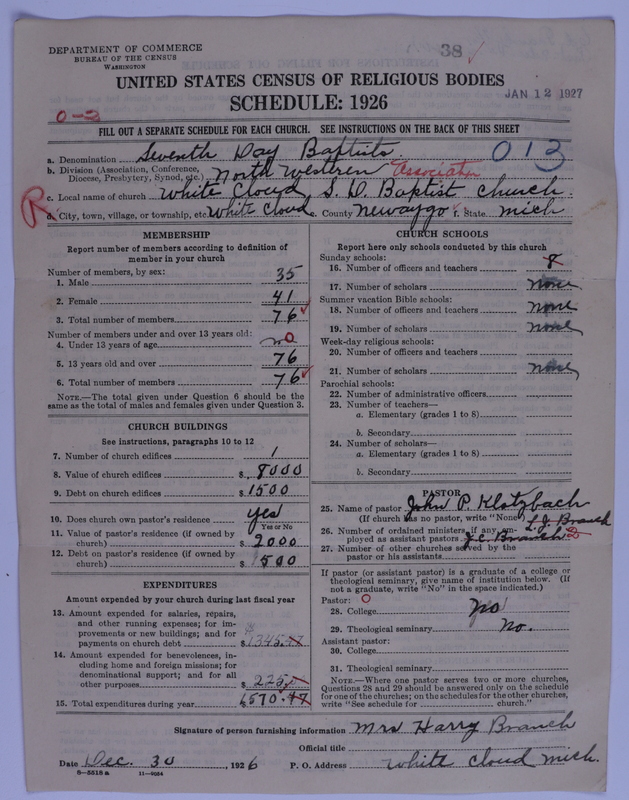 DEPARTMENT OF COMMERCE
BUREAU OF THE CENSUS
WASHINGTON
38
UNITED STATES CENSUS OF RELIGIOUS BODIES
SCHEDULE: 1926
JAN 12 1927
0-2
FILL OUT A SEPARATE SCHEDULE FOR EACH CHURCH. SEE INSTRUCTIONS ON THE BACK OF THIS SHEET
013
a. Denomination Seventh Day Baptists
b. Division (Association, Conference, Diocese, Presbytery, Synod, etc.) North Western Association
c. Local name of church White Cloud S. D. Baptist church.
R
d. City, town, village, or township, etc. White Cloud e. County Newaygo f. State mich
MEMBERSHIP
Report number of members according to definition of
member in your church
Number of members, by sex:
1. Male 35
2. Female 41
3. Total number of members 76
Number of members under and over 13 years old:
4. Under 13 years of age no 0
5. 13 years old and over 76
6. Total number of members 76
NOTE.—The total given under Question 6 should be the
same as the total of males and females given under Question 3.
CHURCH BUILDINGS
See instructions, paragraphs 10 to 12
7. Number of church edifices 1
8. Value of church edifices $ 8000
9. Debt on church edifices $ 1500
10. Does church own pastor's residence yes
Yes or No
11. Value of pastor's residence (if owned by
church) $ 2000
12. Debt on pastor's residence (if owned by
church) $ 500
EXPENDITURES
Amount expended by your church during last fiscal year
13. Amount expended for salaries, repairs,
and other running expenses; for im-
provements or new buildings; and for
payments on church debt $ 1345.47
14. Amount expended for benevolences, in-
cluding home and foreign missions; for
denominational support; and for all
other purposes $ 225.
15. Total expenditures during year 1570.47
CHURCH SCHOOLS
Report here only schools conducted by this church
Sunday schools:
16. Number of officers and teachers 8
17. Number of scholars none
Summer vacation Bible schools:
18. Number of officers and teachers none
19. Number of scholars none
Week-day religious schools:
20. Number of officers and teachers
21. Number of scholars none
Parochial schools:
22. Number of administrative officers
23. Number of teachers—
a. Elementary (grades 1 to 8)
b. Secondary
24. Number of scholars—
a. Elementary (grades 1 to 8)
b. Secondary
PASTOR
25. Name of pastor John P. Klotzbach
(If church has no pastor, write "None")
L. J. Branch
26. Number of ordained ministers, if any, em-
ployed as assistant pastors J. C. Branch 2
27. Number of other churches served by the
pastor or his assistants
If pastor (or assistant pastor) is a graduate of a college or
theological seminary, give name of institution below. (If
not a graduate, write "No" in the space indicated.)
Pastor: 0
28. College no
29. Theological seminary no.
Assistant pastor:
30. College
31. Theological seminary
NOTE.—Where one pastor serves two or more churches,
Questions 28 and 29 should be answered only on the schedule
for one of the churches; on the schedules for the other churches,
write "See schedule for church."
Signature of person furnishing information Mrs Harry Branch
Official title
Date Dec. 30, 1926 P. O. Address White Cloud mich.
8-5518 a 11-9054